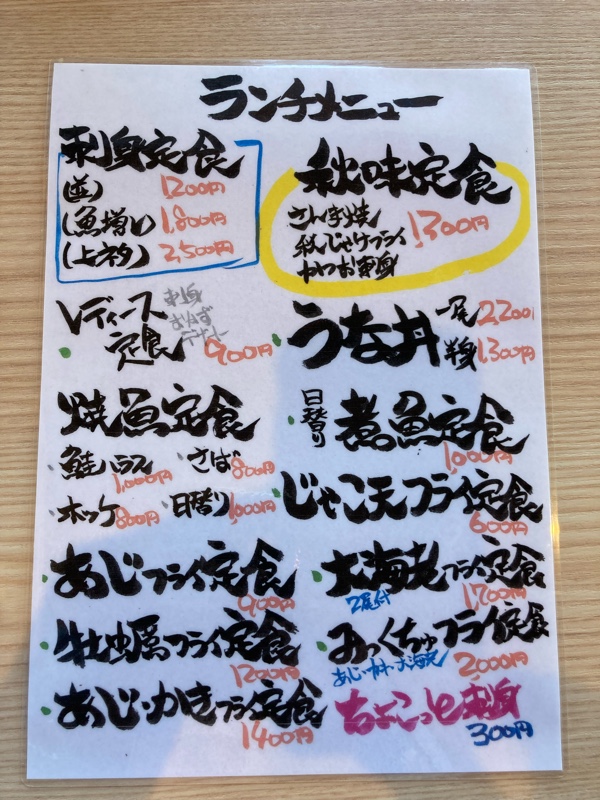 ランチメニュー
刺身定食
(並) 1,200円
(魚増し) 1,800円
(上ネタ) 2,500円
秋味定食
さんま焼
秋じゃけフライ
かつお刺身
1,300円
レディース
定食
刺身
おかず
デザート
900円
うな丼
一尾 2,200円
半身 1,300円
焼魚定食
鮭ハラス 1,000円
さば 800円
ホッケ 800円
日替り 1,000円
日替り
煮魚定食
1,000円
じゃこ天フライ定食
600円
あじフライ定食
900円
大海老フライ定食
2尾付
1,700円
牡蛎フライ定食
1200円
みっくちゅフライ定食
あじ・カキ・大海老
2,000円
あじ・かきフライ定食
1400円
ちょこっと刺身
300円